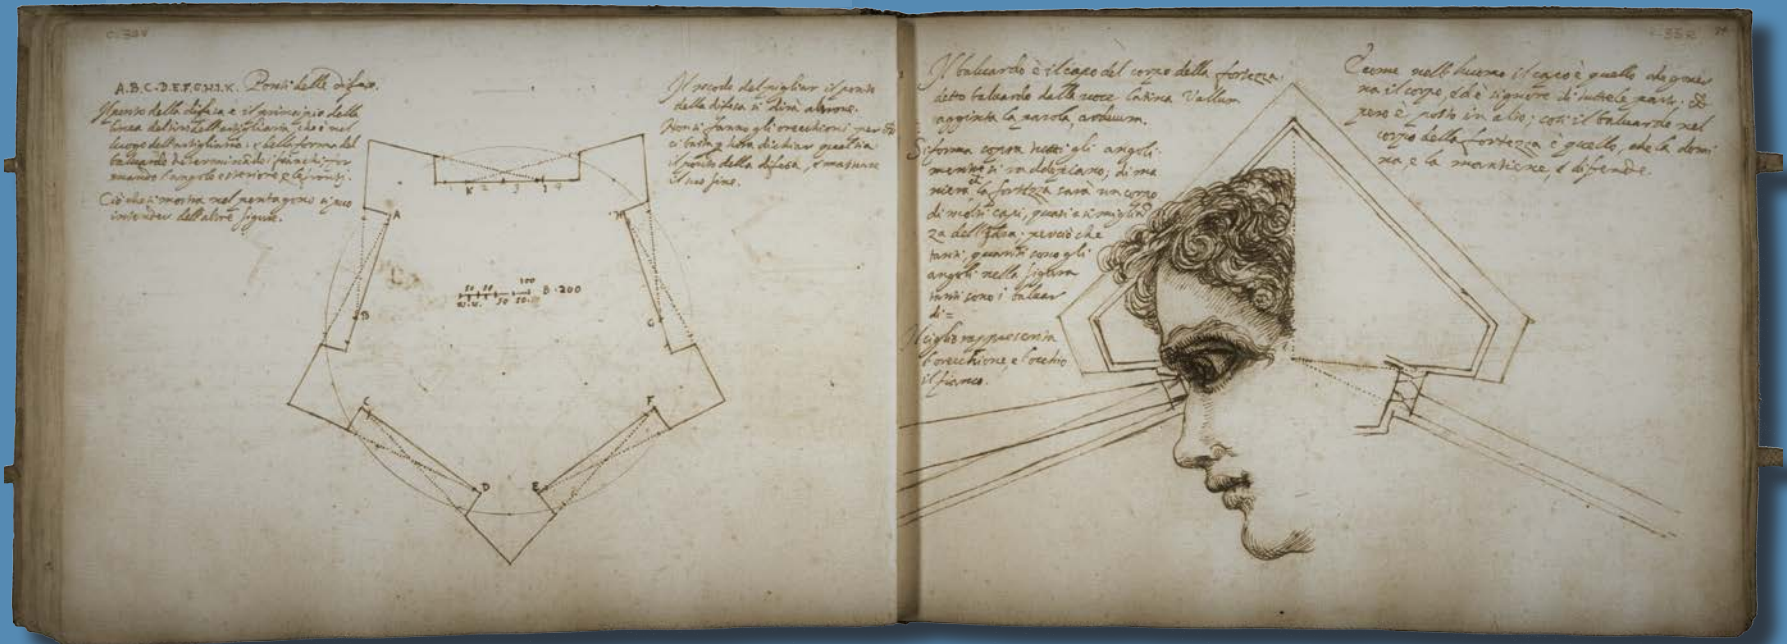 A.B.C.D.E.F.G.H.I.K. Ponti delle difese.
Il ponto della difesa è il principio della
linea del tiro dell'artigliaria, che è nel
luogo dell'artigliaria. e la forma del
baluardo di termini di fianchi,
l'angolo esteriore, e la fronti.
Ciò che si mostra nel pentagono si può
intender dell'altre figure.
Il modo del pigliar il ponto
della difesa si dirà altrove.
Non si fanno gli orecchioni per
il ponto della difesa, e mostrare
il suo fine.
A
B
C
D
E
F
G
H
I
K
2
3
4
50
50
100
50
50
200
Il baluardo è il capo del corpo della fortezza.
detto baluardo dalla voce latina Vallum
aggiunta la parola,
Si forma sopra tutti gli angoli.
mentre si van doppiano; di ma
niera, la fortezza sarà un corpo
di molti capi, quasi a simiglian
za dell'Idra. perciò che
tanti, quanti sono gli
angoli nella figura
tanti sono i baluar
di=
Il ciglio rappresenta
l'orecchione, e l'occhio
il fianco.
Come nell'huomo il capo è quello che gover
na il corpo, ed è signore di tutte le parti, &
però è posto in alto; così il baluardo nel
corpo della fortezza è quello, che la domi
na, e la mantiene, e difende.